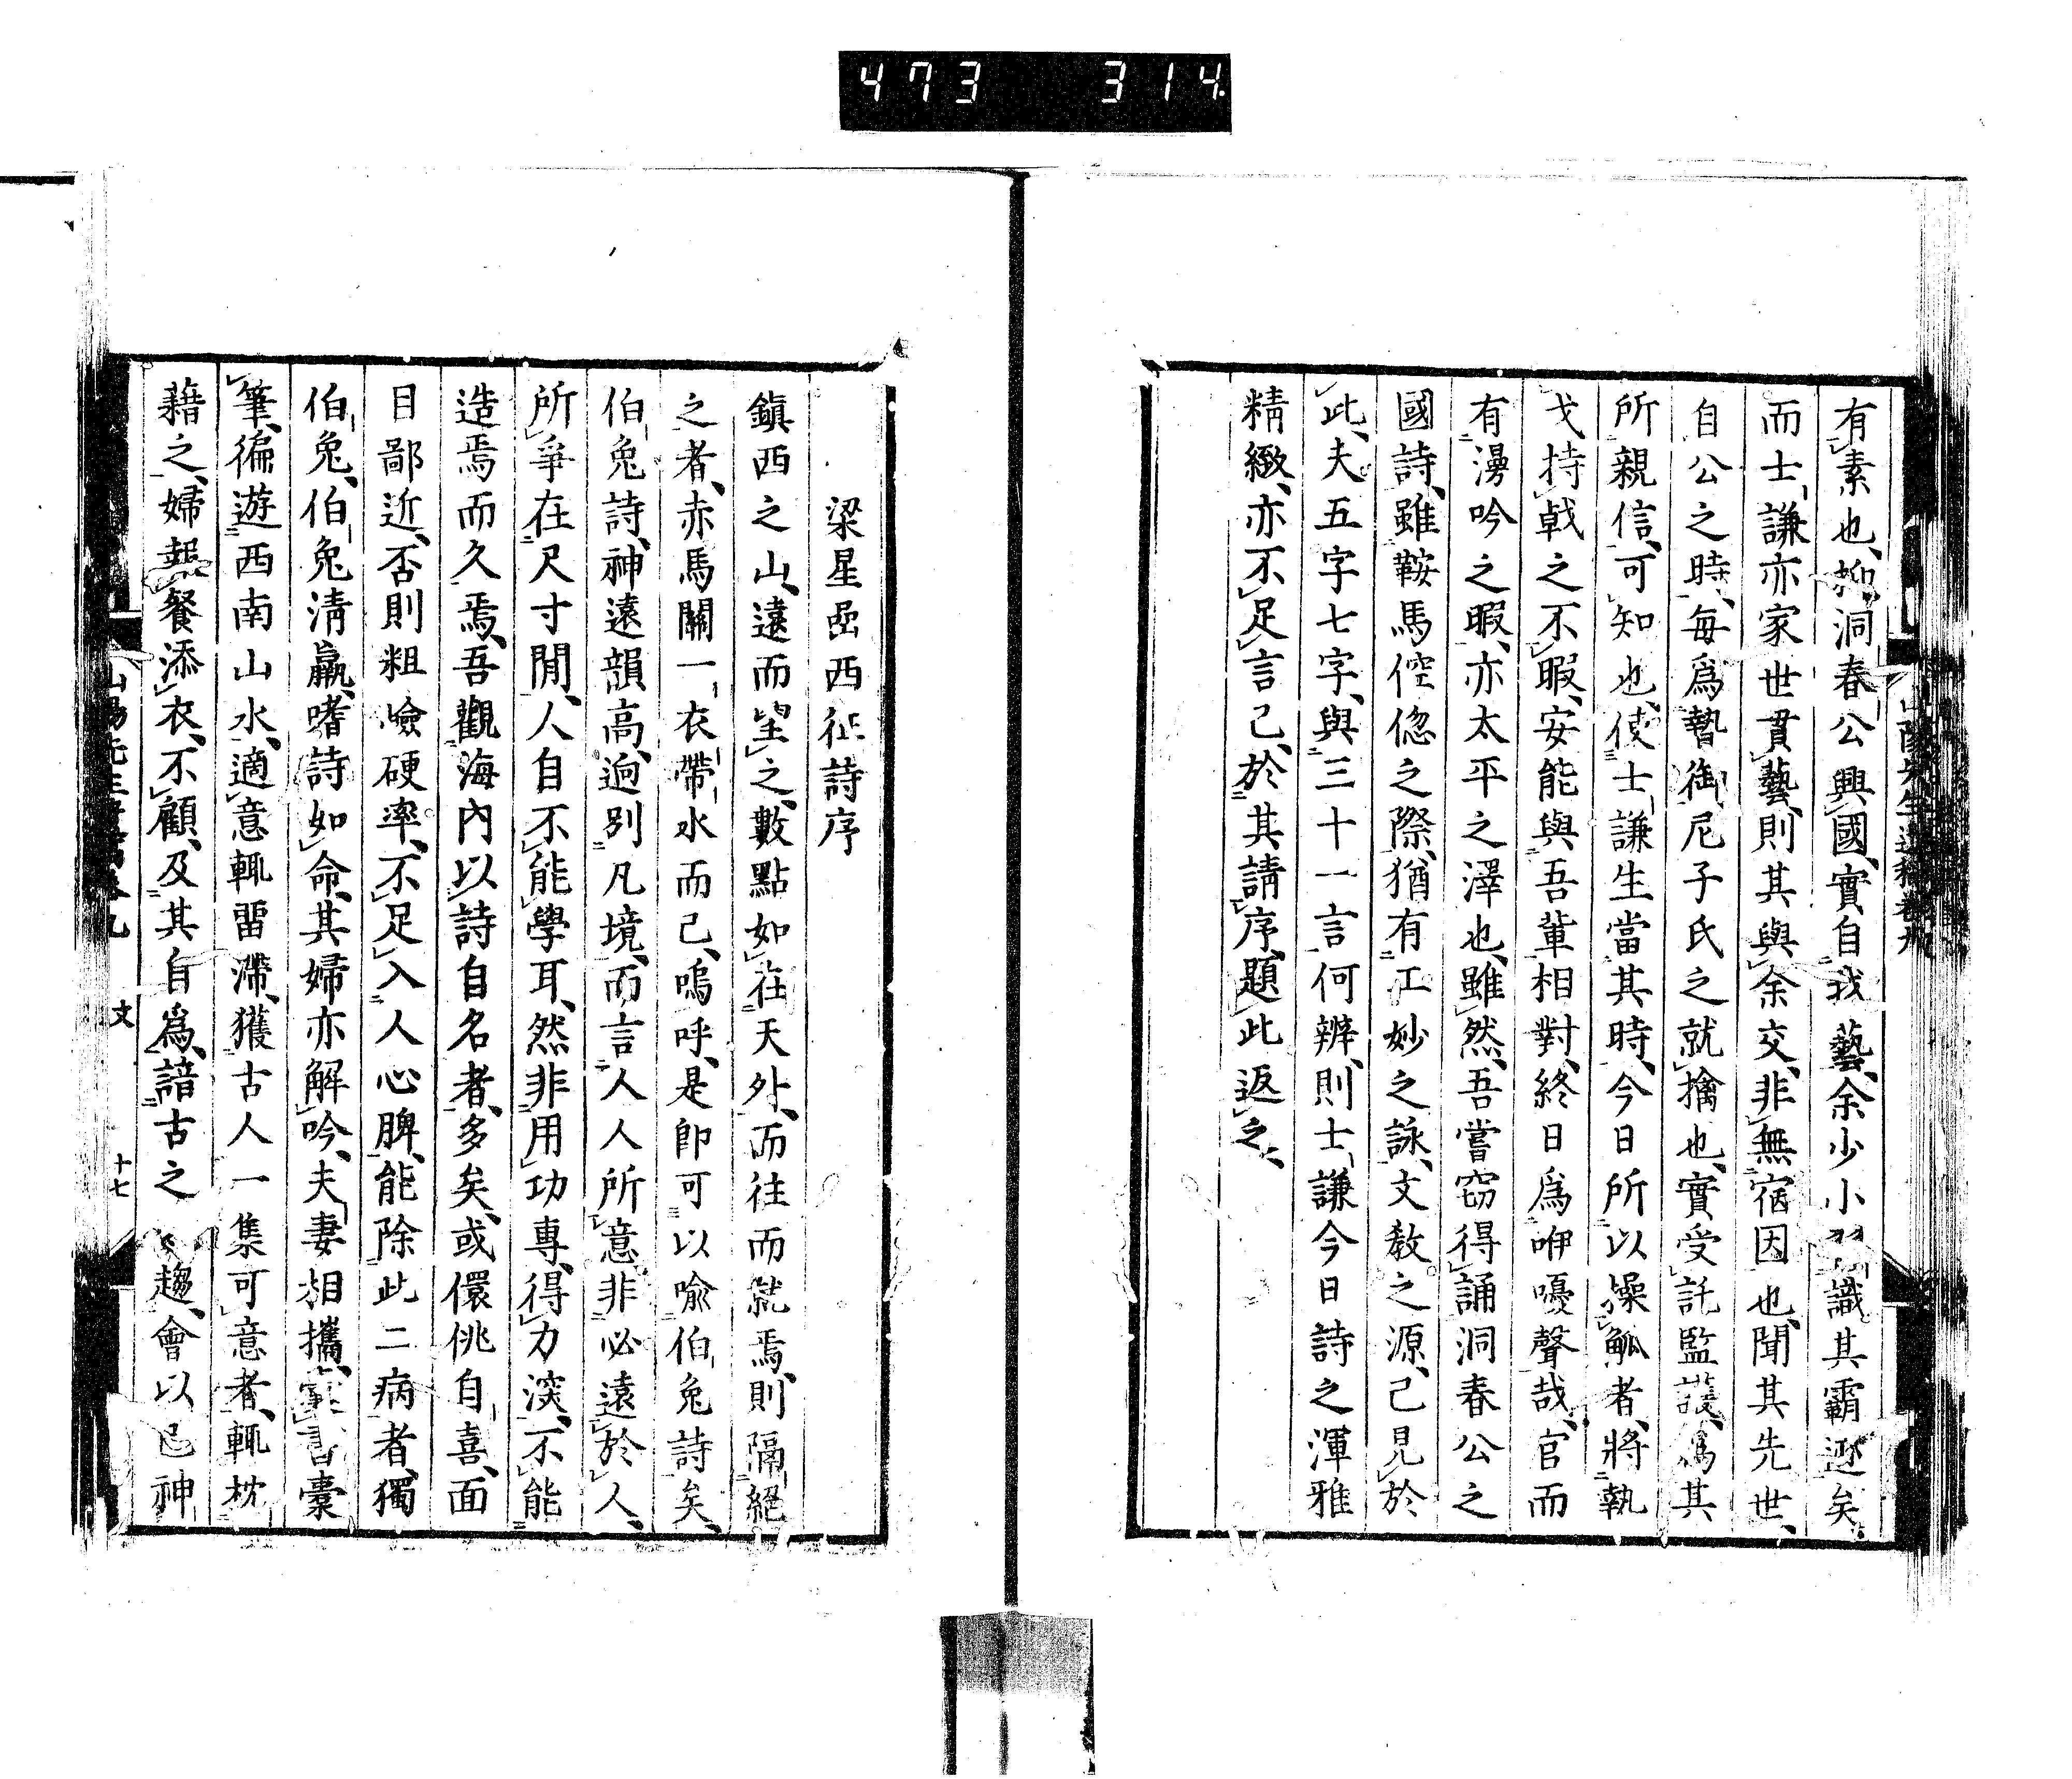 473 314
有素也、抑洞春公興國、實自我藝、余少小習識其霸迹矣、
而士謙亦家世貫藝、則其與余交、非無宿因也、聞其先世、
自公之時、每爲贄御、尼子氏之就擒也、實受託監護、爲其
所親信、可知也、使士謙生當其時、今日所以操觚者、將執
戈持戟之不暇、安能與吾輩相對、終日爲咿嚘聲哉、官而
有漫吟之暇、亦太平之澤也、雖然、吾嘗窃得誦洞春公之
國詩、雖鞍馬倥偬之際、猶有工妙之詠、文敎之源、已見於
此、夫五字七字、與三十一言何辨、則士謙今日詩之渾雅
精緻、亦不足言已、於其請序、題此返之、
梁星嵒西征詩序
鎭西之山、遠而望之、數點如在天外、而往而就焉、則隔絕
之者、赤馬關一衣帶水而已、嗚呼、是卽可以喩伯兔詩矣、
伯兔詩、神遠韻高、逈別凡境、而言人人所意、非必遠於人、
所爭在尺寸閒、人自不能學耳、然非用功專、得力深、不能
造焉而久焉、吾觀海內以詩自名者、多矣、或儇佻自喜、面
目鄙近、否則粗嶮硬率、不足入人心脾、能除此二病者、獨
伯兔、伯兔淸羸、嗜詩如命、其婦亦解吟、夫妻相攜、書囊
筆、徧遊西南山水、適意輒畱滯、獲古人一集可意者、輒枕
藉之、婦報餐添衣、不顧、及其自爲、諳古之趨、會以己神
山陽先生遺稿卷九 文 十七